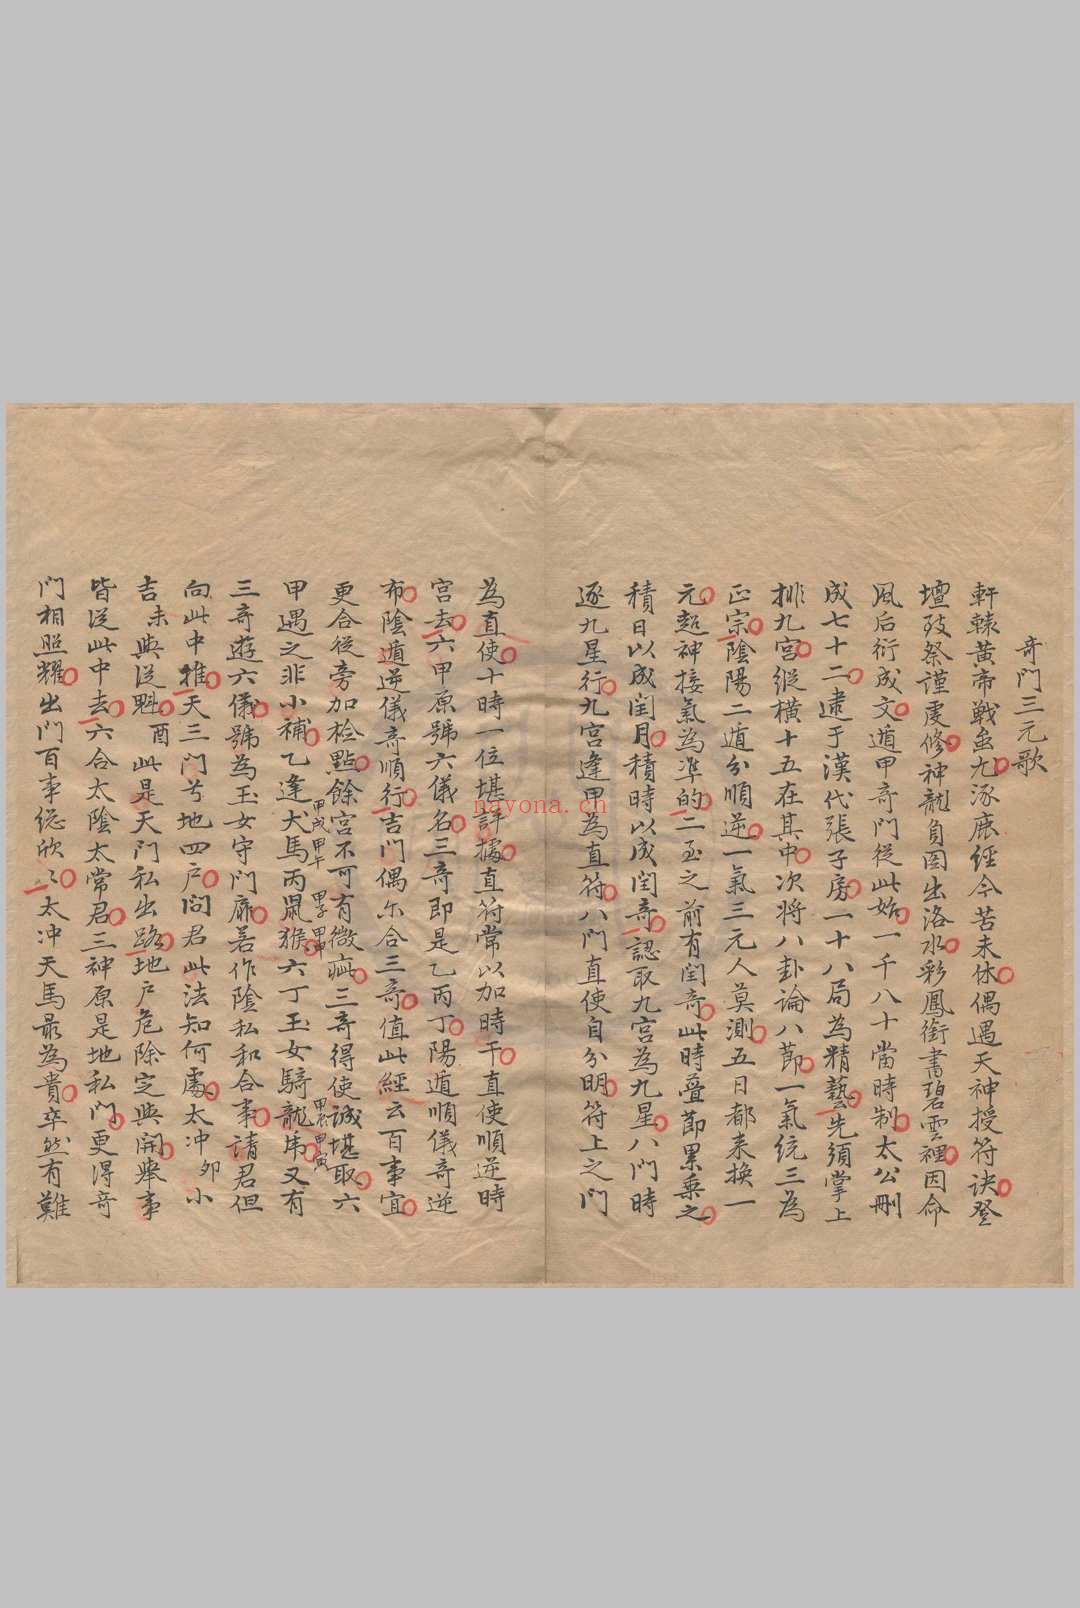 奇門三元歌
軒轅黃帝戰蚩尤涿鹿經今苦未休偶遇天神授符訣登
壇致祭謹虔修神龍負图出洛水彩鳳銜書碧雲裡因命
風后衍成文遁甲奇門從此始一千八十當時制太公刪
成七十二逮于漢代張子房一十八局為精藝先須掌上
排九宮縱橫十五在其中次將八卦論八節一氣統三為
正宗陰陽二遁分順逆一氣三元人莫測五日都来換一
元超神接氣為準的二至之前有閏奇此時疊節累乘之
積日以成閏月積時以成閏奇認取九宮為九星八門時
逐九星行九宮逢甲為直符八門直使自分明符上之門
為直使十時一位堪詳據直符常以加時干直使順逆時
宮去六甲原號六儀名三奇即是乙丙丁陽遁順儀奇逆
布陰遁逆儀奇順行吉門偶尓合三奇值此經云百事宜
更合從旁加检點餘宮不可有微疵三奇得使誠堪取六
甲遇之非小補乙逢犬馬丙鼠猴六丁玉女騎龍虎又有
甲戌甲午 甲子甲申 甲辰甲寅
三奇遊六儀號為玉女守門扉若作陰私和合事請君但
向此中推天三門兮地四户問君此法知何處太冲卯小
吉未與從魁酉此是天門私出路地户危除定與開舉事
皆從此中去六合太陰太常君三神原是地私門更得奇
門相照耀出門百事総欣〻太冲天馬最為貴卒然有難
nayona.cn